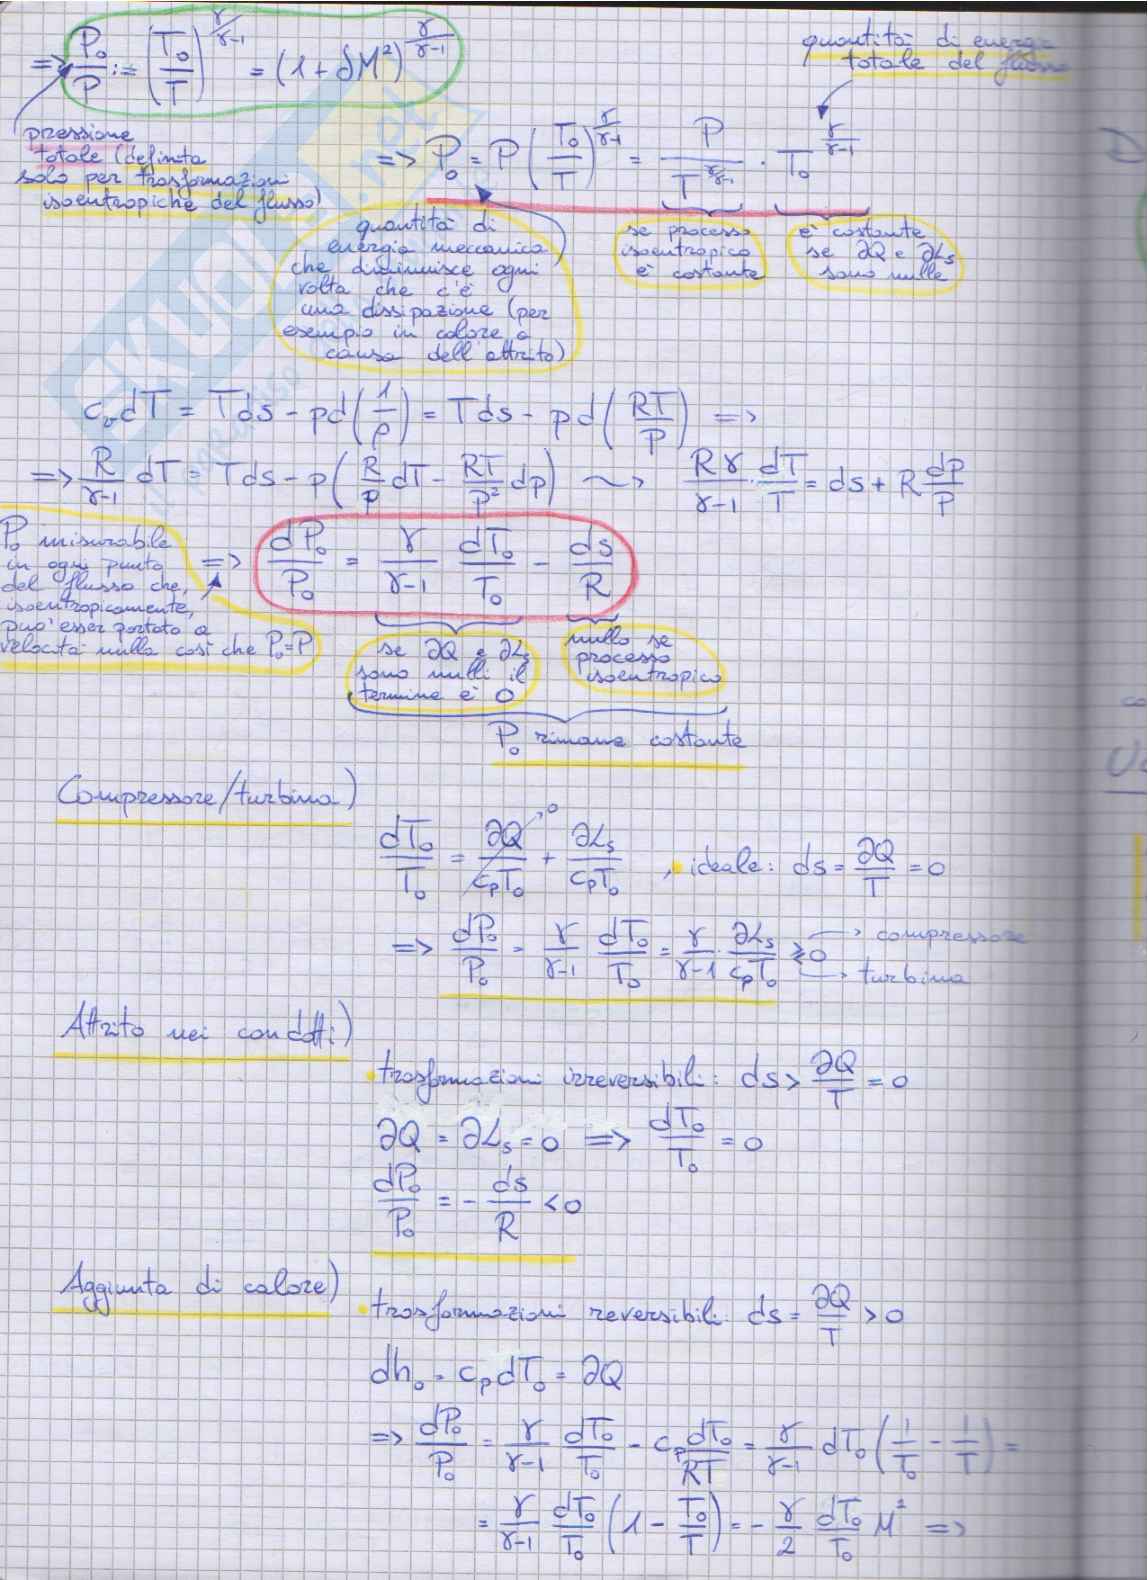 => P₀/P := (T₀/T)^(γ/γ-1) = (1 + δM²)^(γ/γ-1)
quantità di energia
totale del flusso
pressione
totale (definita
solo per trasformazioni
isoentropiche del flusso)
=> P₀ = P (T₀/T)^(γ/γ-1) = P/T^(γ/γ-1) · T₀^(γ/γ-1)
quantità di
energia meccanica
che diminuisce ogni
volta che c'è
una dissipazione (per
esempio in calore a
causa dell'attrito)
se processo
isoentropico
è costante
è costante
se ∂Q e ∂Ls
sono nulle
c_v dT = Tds - pd(1/ρ) = Tds - pd(RT/P) =>
=> R/γ-1 dT = Tds - p(R/p dT - RT/P² dp) ~> Rγ/γ-1 · dT/T = ds + R dp/P
P₀ misurabile
in ogni punto
del flusso che,
isoentropicamente,
può esser portato a
velocità nulla così che P₀=P
=> dP₀/P₀ = γ/γ-1 dT₀/T₀ - ds/R
se ∂Q e ∂Ls
sono nulli il
termine è 0
nullo se
processo
isoentropico
P₀ rimane costante
Compressore/turbina)
dT₀/T₀ = ∂Q/cpT₀ →0 + ∂Ls/cpT₀ , ideale: ds = ∂Q/T = 0
=> dP₀/P₀ = γ/γ-1 dT₀/T₀ = γ/γ-1 · ∂Ls/cpT₀ ≷ 0 → compressore
→ turbina
Attrito nei condotti)
trasformazioni irreversibili: ds > ∂Q/T = 0
∂Q = ∂Ls = 0 => dT₀/T₀ = 0
dP₀/P₀ = - ds/R < 0
Aggiunta di calore)
trasformazioni reversibili: ds = ∂Q/T > 0
dh₀ = cp dT₀ = ∂Q
=> dP₀/P₀ = γ/γ-1 dT₀/T₀ - cp dT₀/RT = γ/γ-1 dT₀ (1/T₀ - 1/T) =
= γ/γ-1 dT₀/T₀ (1 - T₀/T) = - γ/2 dT₀/T₀ M² =>